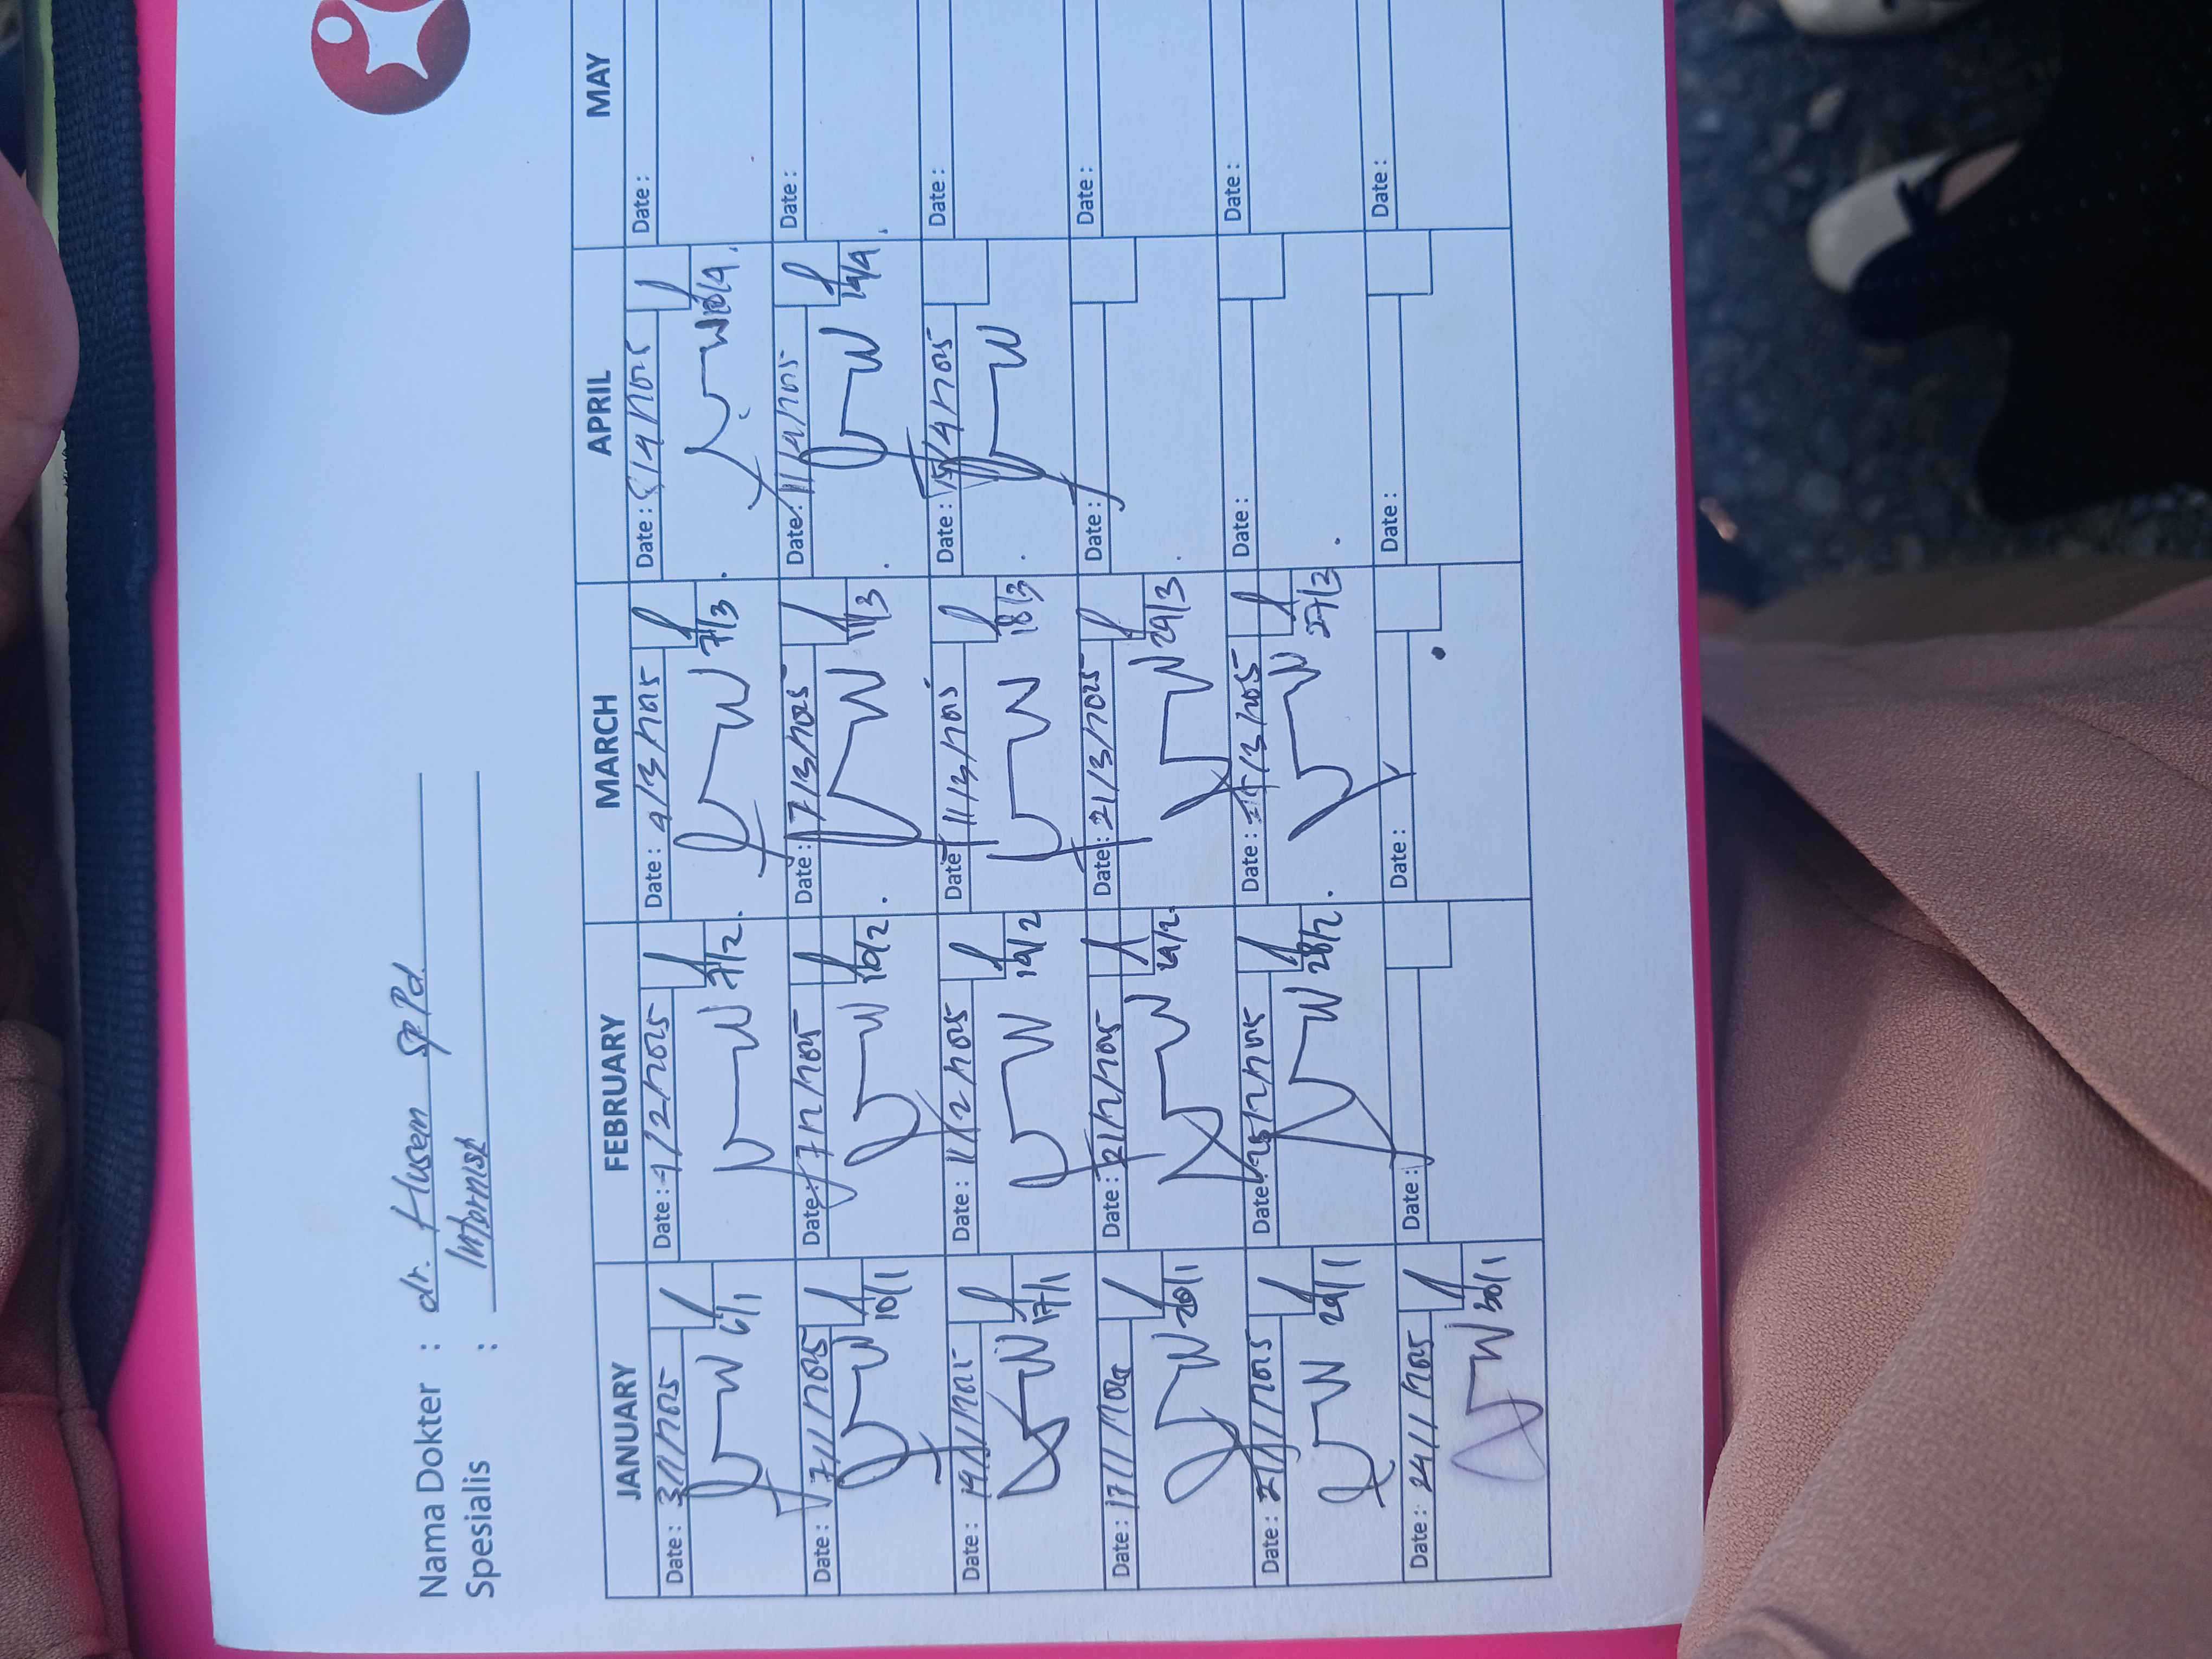 Nama Dokter : dr. Husem SpPd.
Spesialis : Internist
JANUARY FEBRUARY MARCH APRIL MAY
Date: 3/1/2025 Date: 4/2/2025 Date: 4/3/2025 Date: 8/4/2025 Date:
6/1 7/2. 7/3 10/4.
Date: 7/1/2025 Date: 7/2/2025 Date: 7/3/2025 Date: 11/4/2025 Date:
10/1 10/2 11/3 14/4
Date: 14/1/2025 Date: 11/2/2025 Date: 11/3/2025 Date: 15/4/2025 Date:
17/1 14/2 18/3
Date: 17/1/2025 Date: 21/2/2025 Date: 21/3/2025 Date: Date:
20/1 24/3
Date: 21/1/2025 Date: 25/2/2025 Date: Date: Date:
24/1 28/2 27/3
Date: 24/1/2025 Date: Date: Date: Date:
30/1